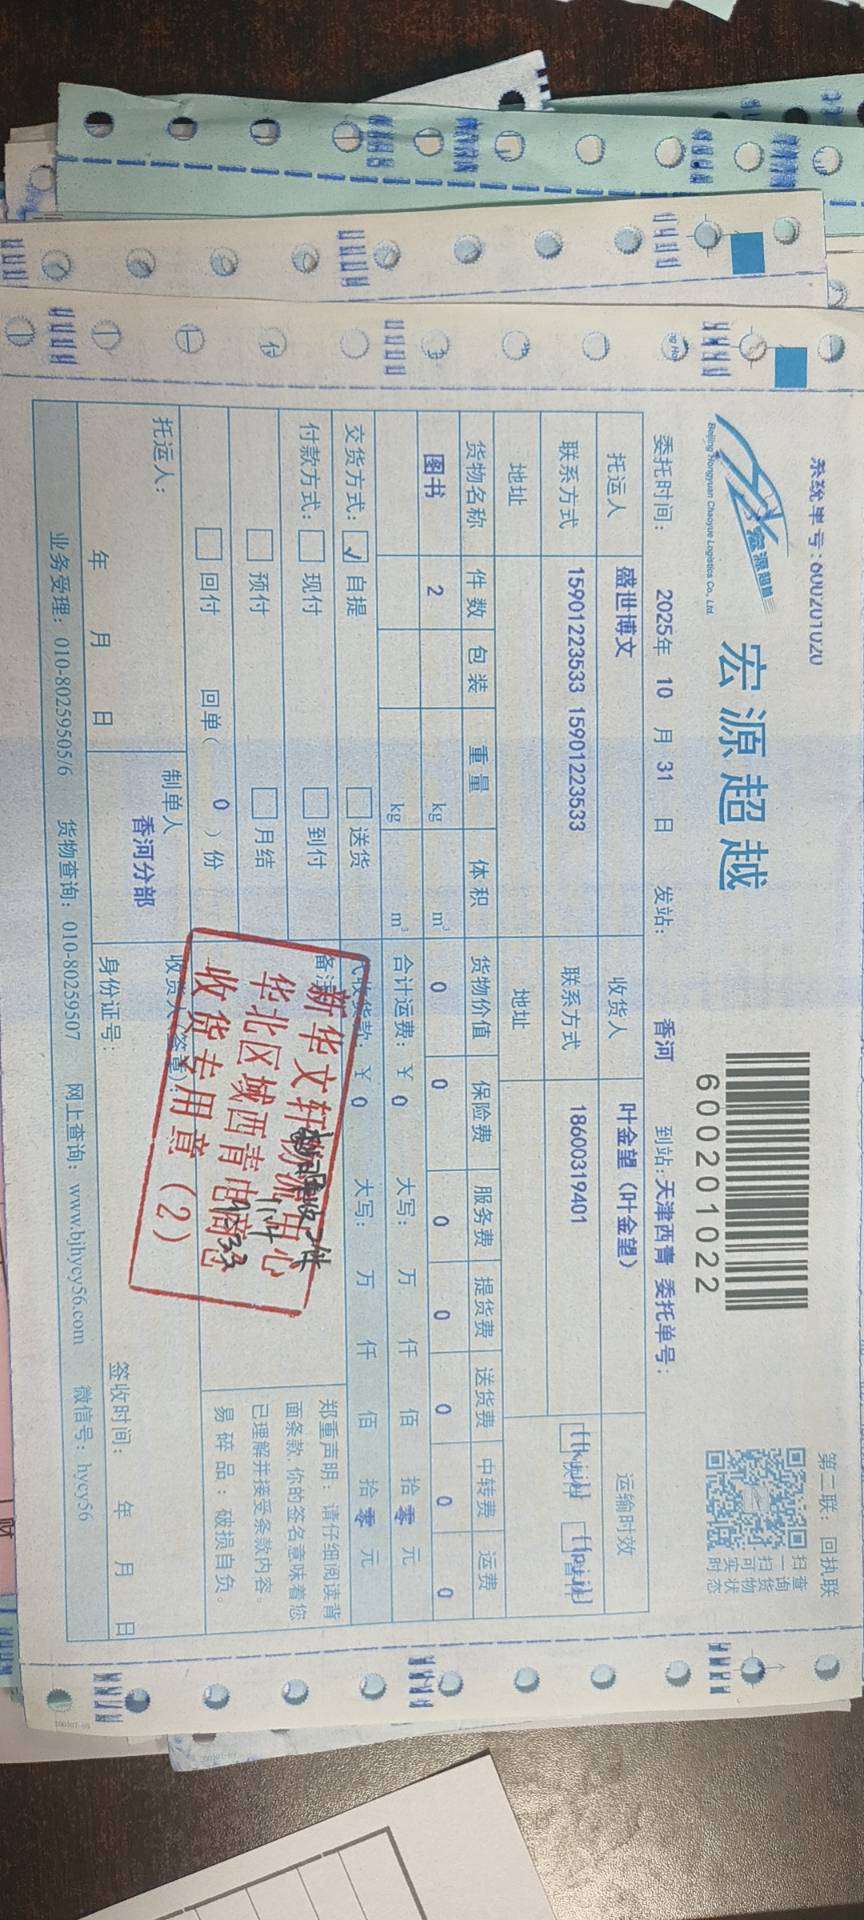 系统单号:600201020
第二联：回执联
宏源超越
宏源超越
Beijing Hongyuan Chaoyue Logistics Co., Ltd.
600201022
扫查
一询
扫货
可物
实状
时态
委托时间： 2025年 10 月 31 日 发站： 香河 到站:天津西青 委托单号：
托运人 盛世博文 收货人 叶金望（叶金望） 运输时效
联系方式 15901223533 15901223533 联系方式 18600319401
地址 地址
货物名称 件数 包装 重量 体积 货物价值 保险费 服务费 提货费 送货费 中转费 运费
图书 2 kg m³ 0 0 0 0 0 0 0
kg m³ 合计运费：￥ 0 大写： 万 仟 佰 拾 零 元
交货方式： ✓ 自提 送货 代收货款：￥ 0 大写： 万 仟 佰 拾 零 元
付款方式： 现付 到付 备注
预付 月结
回付 回单（ 0 ）份
郑重声明：请仔细阅读背
面条款,你的签名意味着您
已理解并接受条款内容。
易碎品：破损自负。
新华文轩物流中心
华北区域西青电商仓
收货专用章（2）
托运人： 制单人 收货人（签章）
香河分部
年 月 日 身份证号： 签收时间： 年 月 日
业务受理：010-80259505/6 货物查询：010-80259507 网上查询：www.bjhycy56.com 微信号：hycy56